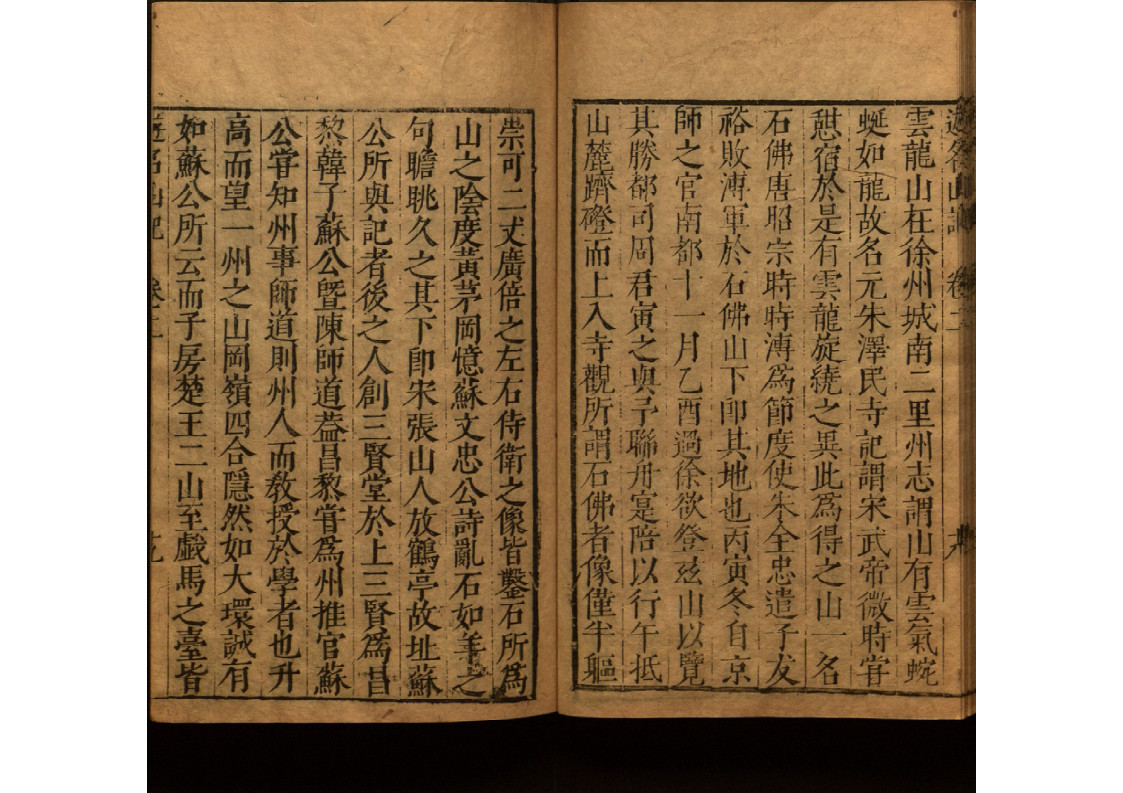 遊名山記 卷二 十八
雲龍山在徐州城南二里州志謂山有雲氣蜿
蜒如龍故名元朱澤民寺記謂宋武帝微時嘗
憇宿於是有雲龍旋繞之異此為得之山一名
石佛唐昭宗時時溥為節度使朱全忠遣子友
裕敗溥軍於石佛山下卽其地也丙寅冬自京
師之官南都十一月乙酉過徐欲登玆山以覽
其勝都司周君寅之與予聯舟寔陪以行午抵
山麓躋磴而上入寺觀所謂石佛者像僅半軀
崇可二丈廣倍之左右侍衛之像皆鑿石所為
山之陰度黃茅岡憶蘇文忠公詩亂石如羊之
句瞻眺久之其下卽宋張山人放鶴亭故址蘇
公所與記者後之人創三賢堂於上三賢為昌
黎韓子蘇公曁陳師道葢昌黎嘗為州推官蘇
公嘗知州事師道則州人而敎授於學者也升
高而望一州之山岡嶺四合隱然如大環誠有
如蘇公所云而子房楚王二山至戲馬之臺皆
遊名山記 卷二 十九